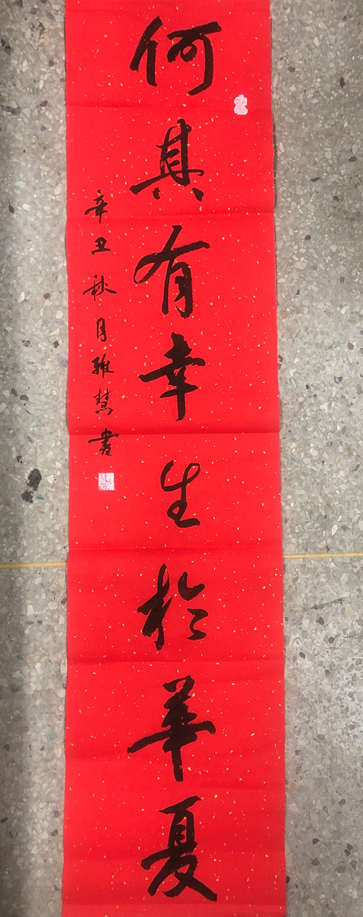 何其有幸生於華夏
辛丑秋月雅慧書